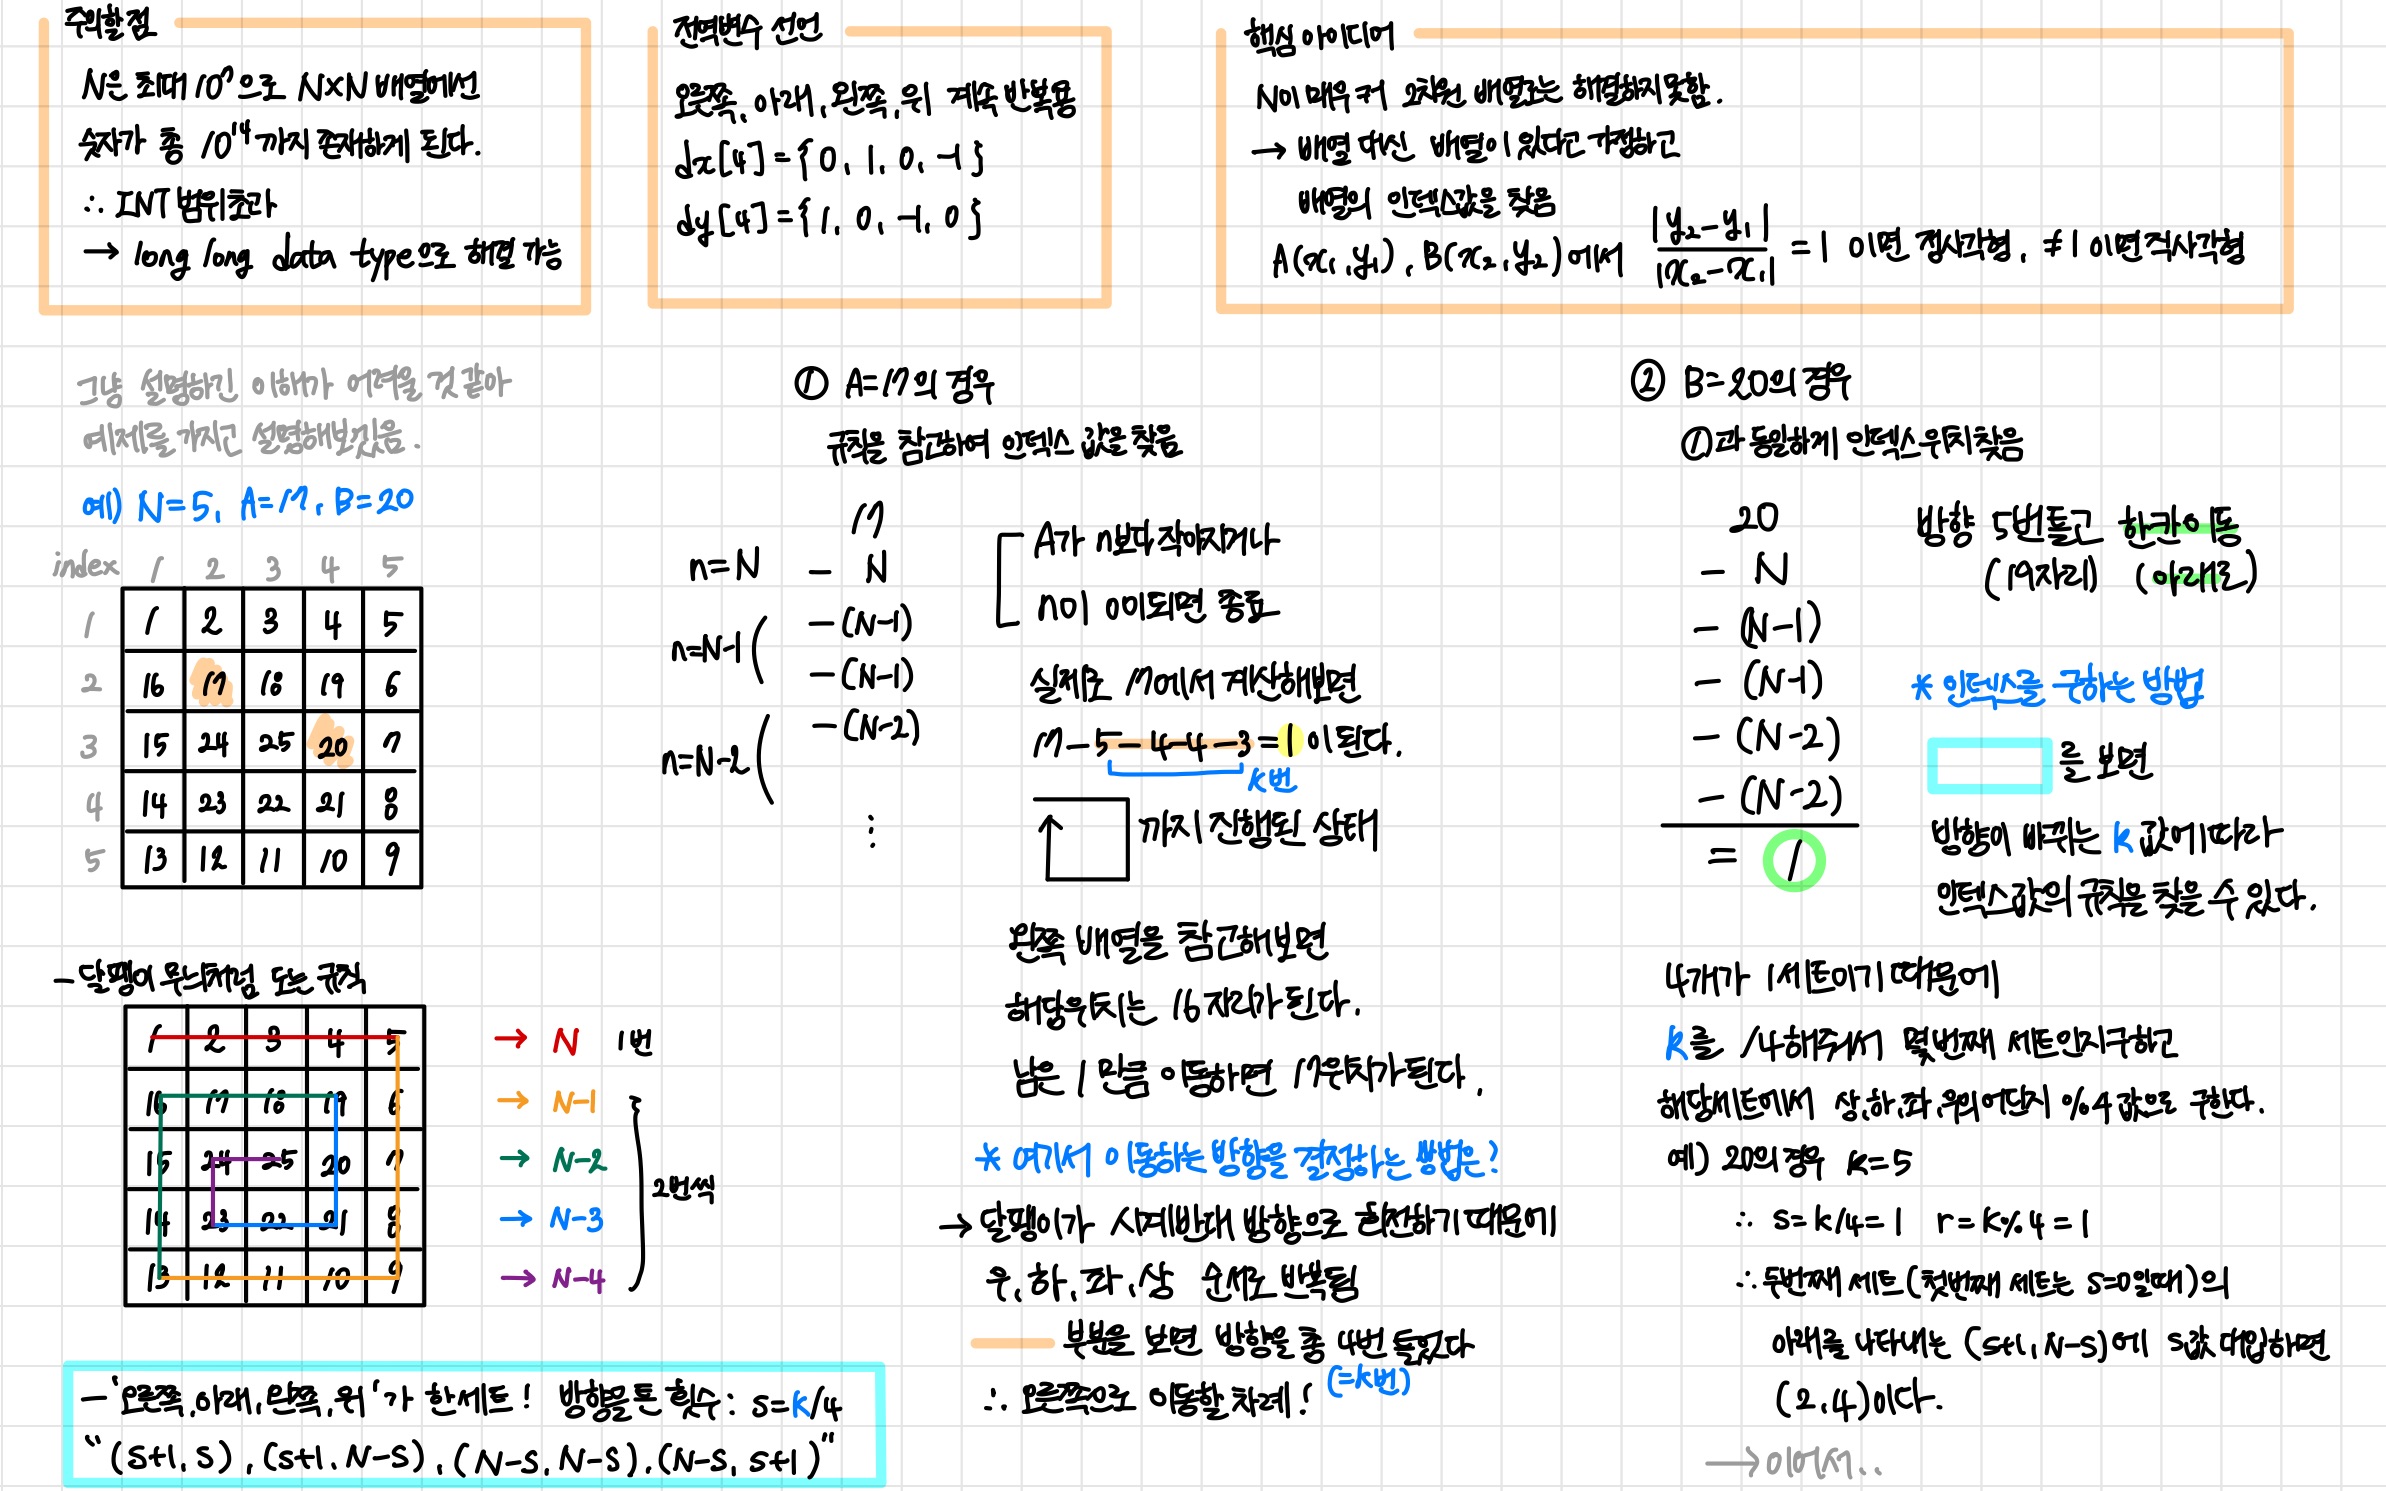 주의할 점
N은 최대 10⁷으로 N×N 배열에선
숫자가 총 10¹⁴까지 존재하게 된다.
∴ INT 범위초과
→ long long data type으로 해결 가능
전역변수 선언
오른쪽, 아래, 왼쪽, 위 계속 반복용
dx[4]={0, 1, 0, -1}
dy[4]={1, 0, -1, 0}
핵심 아이디어
N이 매우 커 2차원 배열로는 해결하지 못함.
→ 배열 대신 배열이 있다고 가정하고
배열의 인덱스값을 찾음
A(x₁,y₁), B(x₂,y₂)에서 |y₂-y₁| / |x₂-x₁| = 1 이면 정사각형, ≠1 이면 직사각형
그냥 설명하긴 이해가 어려울 것 같아
예제를 가지고 설명해보겠음.
예) N=5, A=17, B=20
index 1 2 3 4 5
1 1 2 3 4 5
2 16 17 18 19 6
3 15 24 25 20 7
4 14 23 22 21 8
5 13 12 11 10 9
- 달팽이 무늬처럼 도는 규칙
1 2 3 4 5 → N 1번
16 17 18 19 6 → N-1
15 24 25 20 7 → N-2
14 23 22 21 8 → N-3
13 12 11 10 9 → N-4
2번씩
- '오른쪽,아래,왼쪽,위'가 한세트! 방향을 튼 횟수: s=k/4
"(s+1, s), (s+1, N-s), (N-s, N-s), (N-s, s+1)"
① A=17의 경우
규칙을 참고하여 인덱스 값을 찾음
17
n=N - N
n=N-1 -(N-1)
-(N-1)
n=N-2 -(N-2)
⋮
A가 n보다 작아지거나
n이 0이되면 종료
실제로 17에서 계산해보면
17-5-4-4-3=1이 된다.
k번
까지 진행된 상태
왼쪽 배열을 참고해보면
해당위치는 16자리가 된다.
남은 1 만큼 이동하면 17위치가 된다.
* 여기서 이동하는 방향을 결정하는 방법은?
→ 달팽이가 시계반대 방향으로 회전하기 때문에
우, 하, 좌, 상 순서로 반복됨
부분을 보면 방향을 총 4번 틀었다
(=k번)
∴ 오른쪽으로 이동할 차례!
② B=20의 경우
①과 동일하게 인덱스위치 찾음
20
- N
- (N-1)
- (N-1)
- (N-2)
- (N-2)
= 1
방향 5번 틀고 한칸이동
(19자리) (아래로)
* 인덱스를 구하는 방법
를 보면
방향이 바뀌는 k 값에 따라
인덱스값의 규칙을 찾을 수 있다.
4개가 1세트이기 때문에
k를 /4해주어서 몇번째 세트인지구하고
해당세트에서 상,하,좌,우의 어딘지 %4 값으로 구한다.
예) 20의 경우 k=5
∴ s=k/4=1 r=k%4=1
∴ 두번째 세트(첫번째 세트는 s=0일때)의
아래를 나타내는 (s+1, N-s)에 s값 대입하면
(2,4)이다.
→이어서..